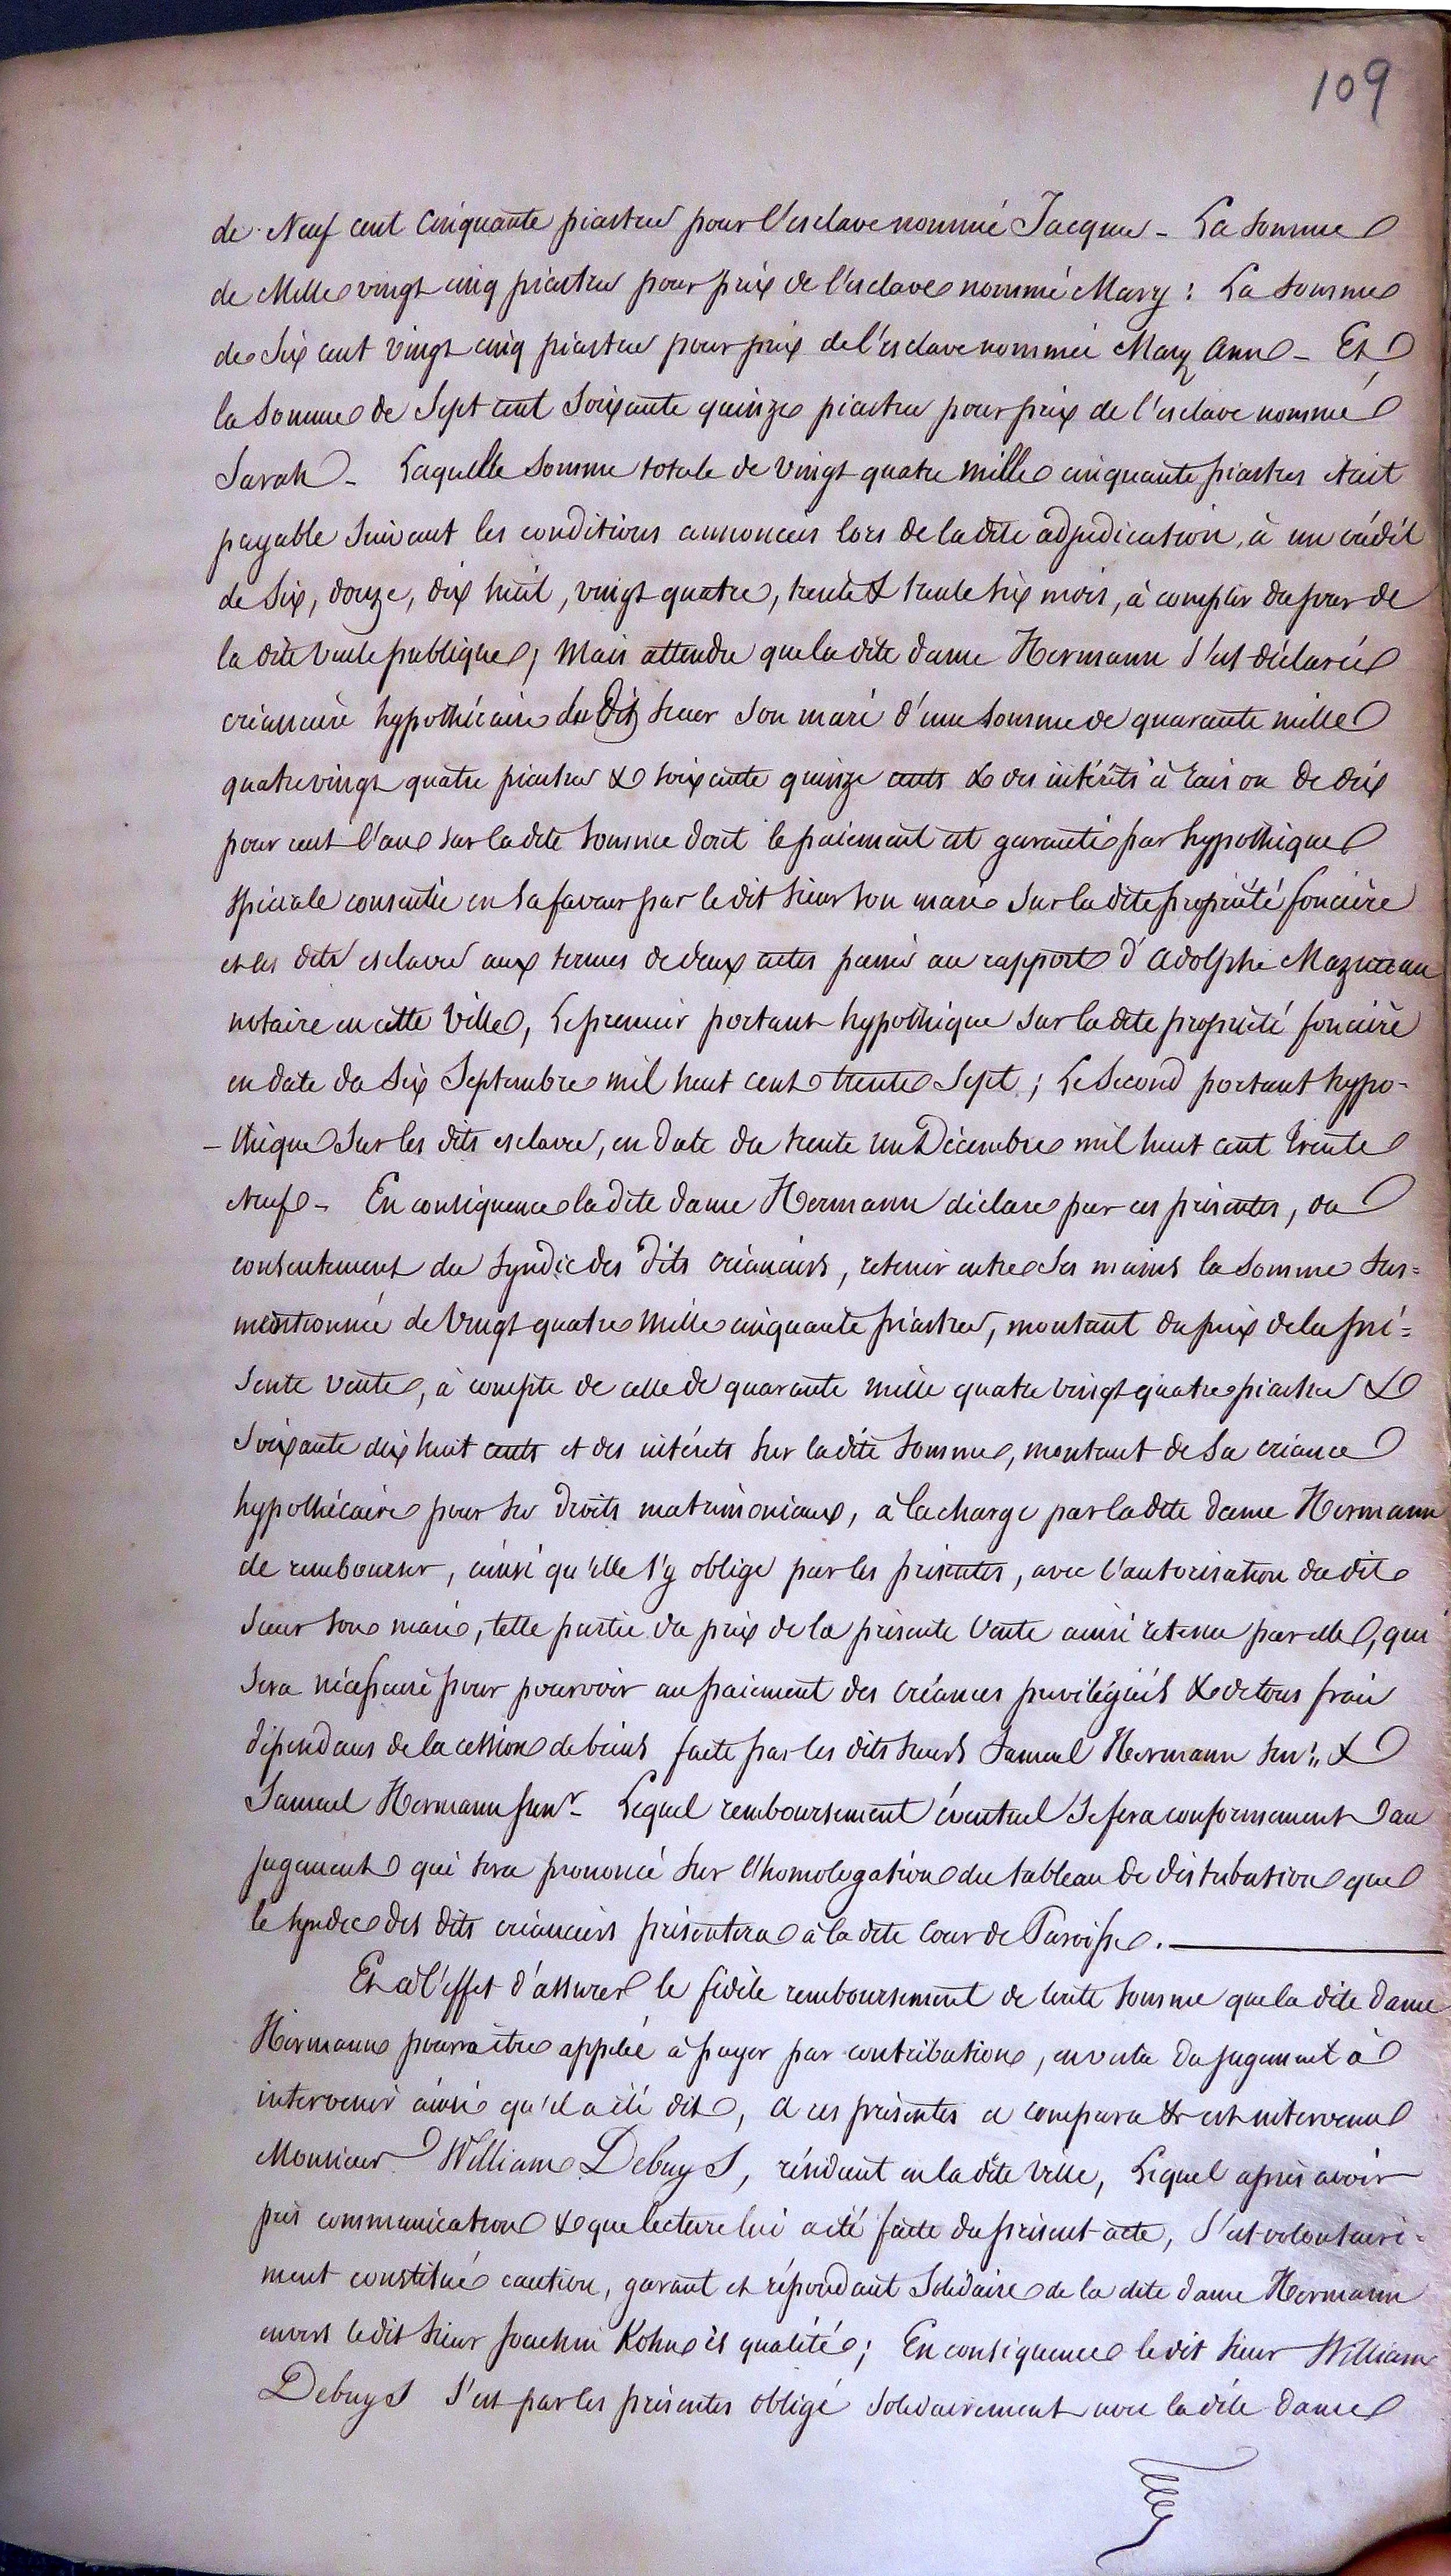 109
de Neuf cent Cinquante piastres pour l'esclave nommé Jacques - La somme
de Mille vingt cinq piastres pour prix de l'esclave nommé Mary : La somme
de Six cent vingt cinq piastres pour prix de l'esclave nommée Mary Ann - Et
la Somme de Sept cent Soixante quinze piastres pour prix de l'esclave nommé
Sarah - Laquelle Somme totale de Vingt quatre mille cinquante piastres était
payable Suivant les conditions annoncées lors de la dite adjudication, à un crédit
de Six, douze, dix huit, vingt quatre, trente & trente six mois, à compter du jour de
la dite Vente publique ; Mais attendu que la dite dame Hermann S'est déclarée
créancière hypothécaire du Dit Sieur Son mari d'une Somme de quarante mille
quatre vingt quatre piastres & soixante quinze cents & des intérêts à raison de dix
pour cent l'an sur la dite Somme dont le paiement est garanti par hypothèque
Spéciale consentie en Sa faveur par le dit Sieur Son mari Sur la dite propriété foncière
et les dits esclaves aux termes de deux actes passés au rapport d'Adolphe Mazureau
notaire en cette Ville, Le premier portant hypothèque Sur la dite propriété foncière
en date du Six Septembre mil huit cent trente Sept ; Le Second portant hypo-
-thèque Sur les dits esclaves, en date du trente un Décembre mil huit cent trente
Neuf - En conséquence la dite dame Hermann déclare par ces présentes, du
consentement du Syndic des dits créanciers, retenir entre Ses mains la Somme Sus=
mentionnée de Vingt quatre Mille cinquante piastres, montant du prix de la pré=
Sente Vente, à compte de celle de quarante mille quatre vingt quatre piastres &
Soixante dix huit cents et des intérêts Sur la dite Somme, montant de Sa créance
hypothécaire pour Ses Droits matrimoniaux, à la charge par la dite dame Hermann
de rembourser, ainsi qu'elle S'y oblige par les présentes, avec l'autorisation du dit
Sieur Son mari, telle partie du prix de la présente Vente ainsi retenue par elle, qui
Sera nécessaire pour pourvoir au paiement des créances privilégiées & de tous frais
dépendans de la cession de biens faite par les dits Sieurs Samuel Hermann Senr. &
Samuel Hermann Junr - Lequel remboursement éventuel Se fera conformément au
jugement qui Sera prononcé Sur l'homologation du tableau de distribution que
le Syndic des dits créanciers présentera à la dite Cour de Paroisse.
Et à l'effet d'assurer le fidèle remboursement de toute Somme que la dite Dame
Hermann pourra être appelée à payer par contribution, en vertu du jugement à
intervenir ainsi qu'il a été dit, à ces présentes a comparu & est intervenu
Monsieur William Debuys, résidant en la dite Ville, Lequel après avoir
pris communication & que lecture lui a été faite du présent acte, S'est volontaire=
ment constitué caution, garant et répondant Solidaire de la dite dame Hermann
envers le dit Sieur Joachim Kohn ès qualité ; En conséquence le dit Sieur William
Debuys S'est par les présentes obligé Solidairement avec la dite dame